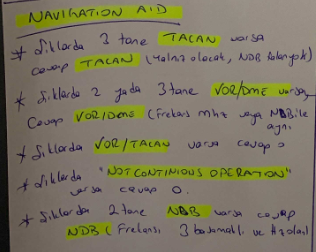 NAVIGATION AID
* Şıklarda 3 tane TACAN varsa
cevap TACAN (Yalnız olacak, NDB falan yok)
* Şıklarda 2 yada 3 tane VOR/DME varsa,
Cevap VOR/DME (Frekans mhz veya NDB ile
aynı
* Şıklarda VOR/TACAN varsa cevap o
* Şıklarda "NOT CONTINIOUS OPERATION"
varsa cevap O.
* Şıklarda 2 tane NDB varsa cevap
NDB ( Frekansı 3 basamaklı ve